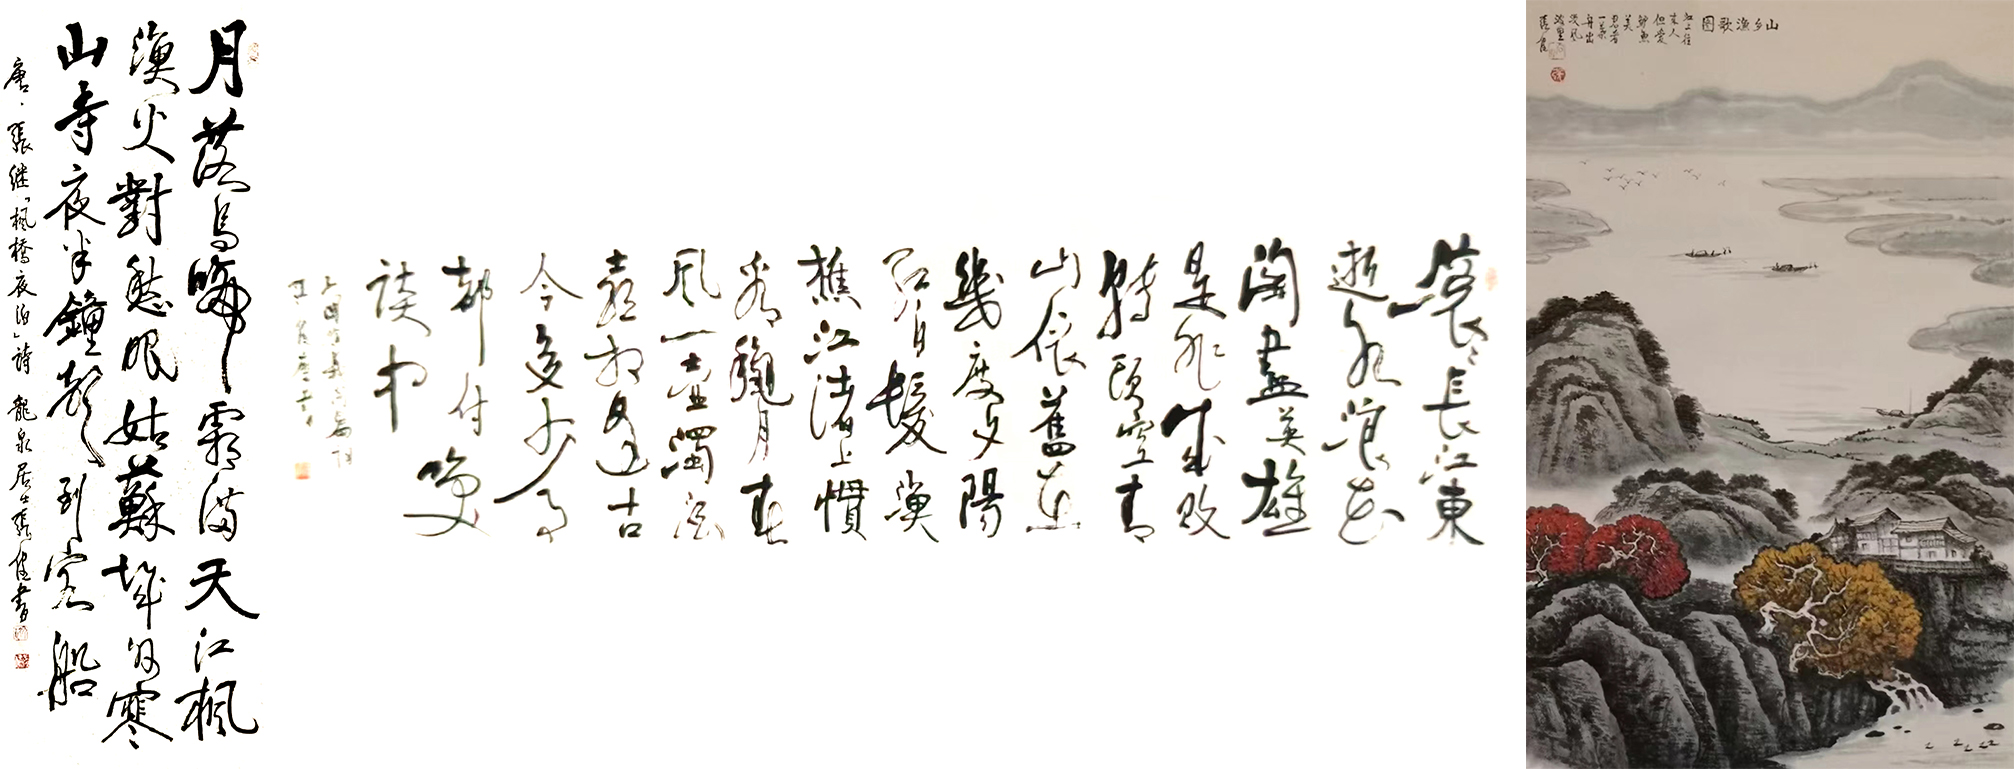 月落烏啼霜滿天江楓
漁火對愁眠姑蘇城外寒
山寺夜半鐘聲到客船
唐·張继「楓橋夜泊」詩 龍泉居士張健書
滾〻長江東
逝水浪花
淘盡英雄
是非成敗
轉頭空青
山依舊在
幾度夕陽
紅白髮漁
樵江渚上慣
看秋月春
風一壺濁酒
喜相逢古
今多少事
都付笑
談中
山乡漁歌图
江上往
来人
但愛
鲈魚
美
君看
一葉
舟出
没风
波里